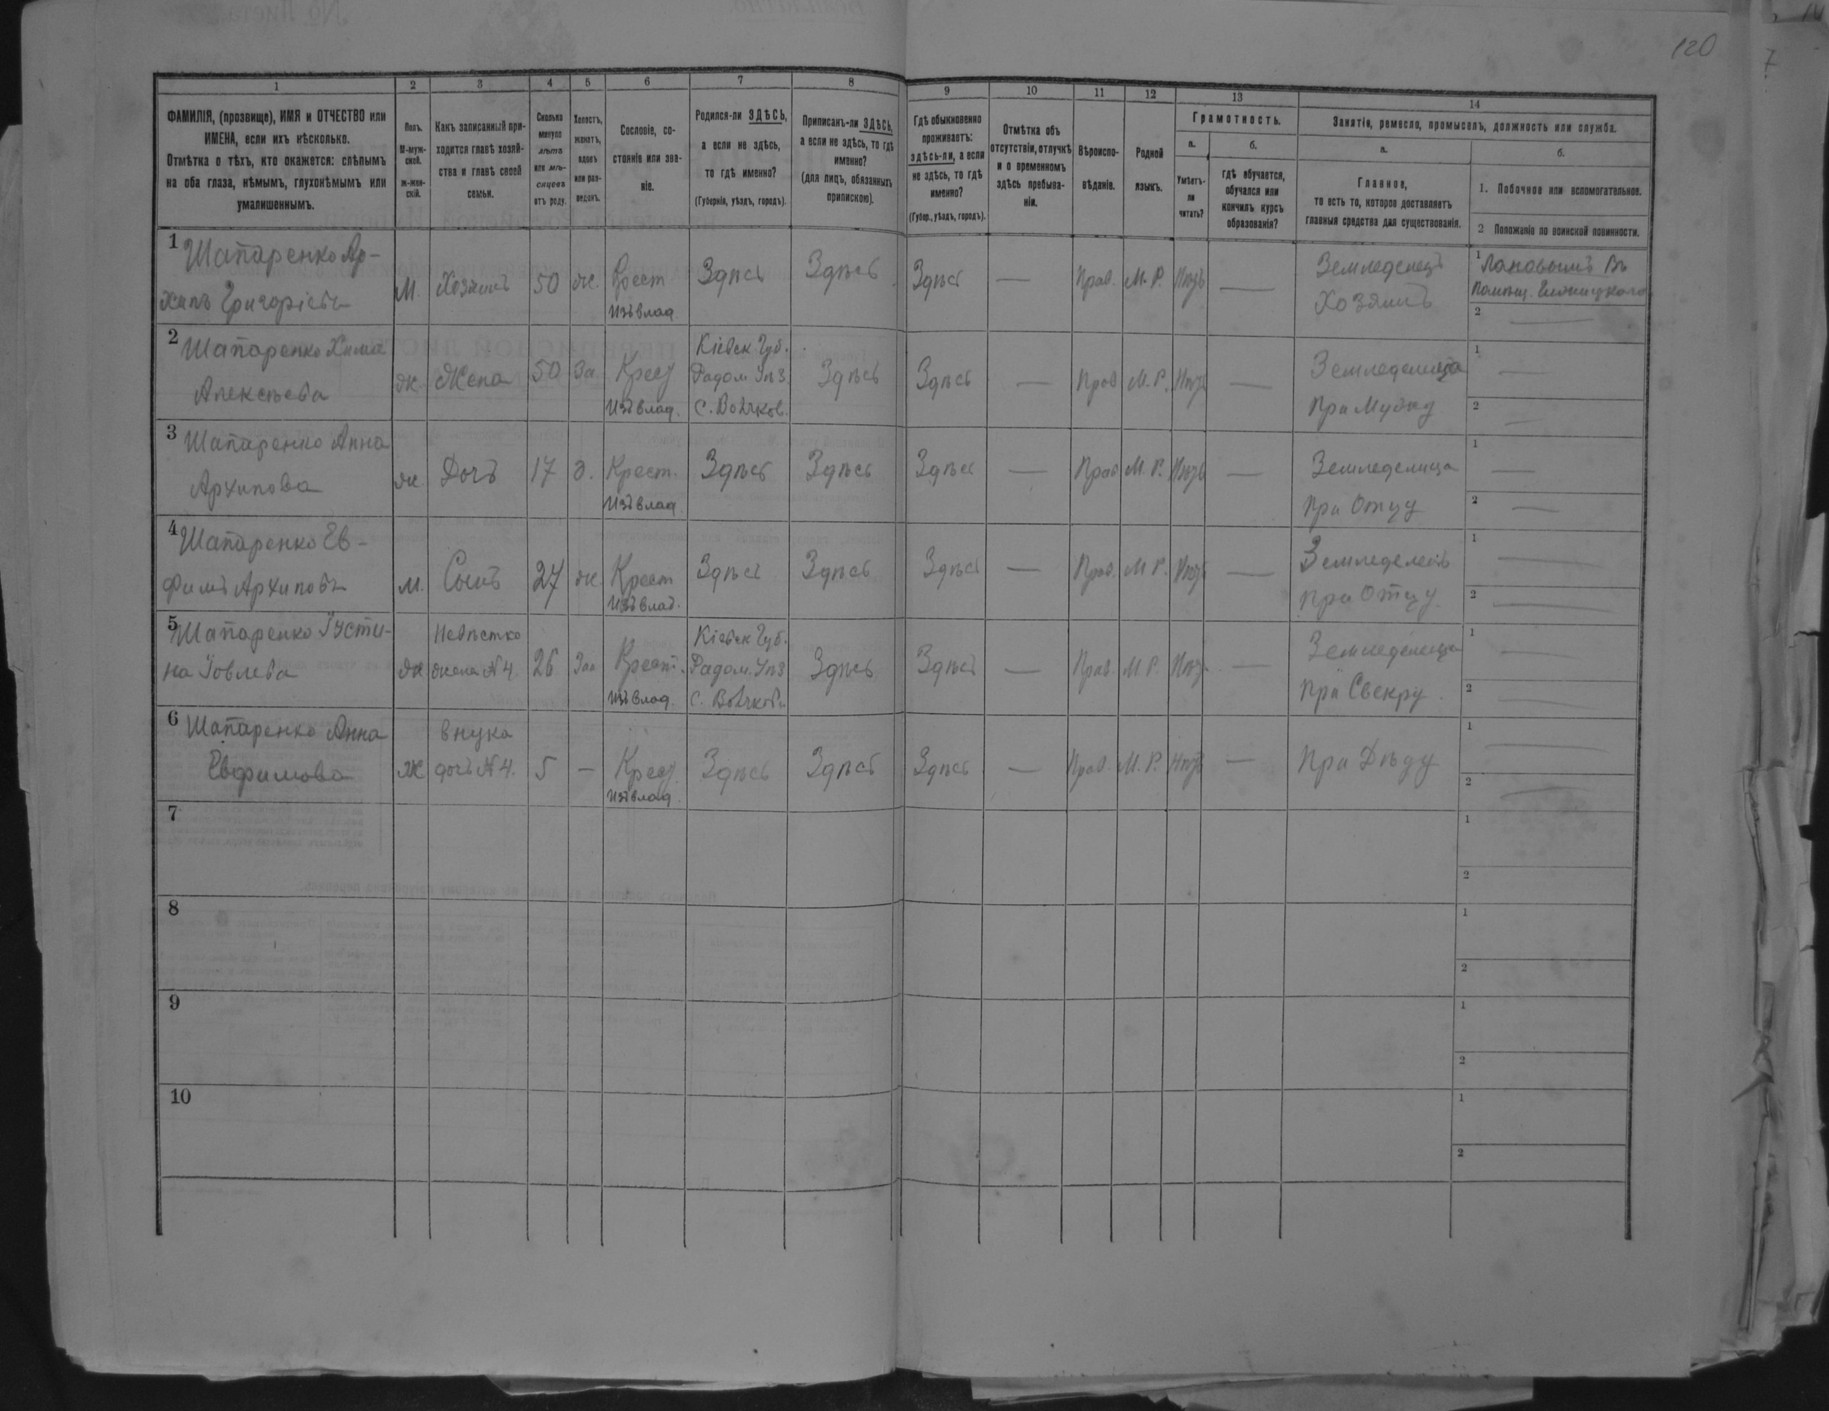 120
1 2 3 4 5 6 7 8 9 10 11 12 13 14
ФАМИЛІЯ, (прозвище), ИМЯ и ОТЧЕСТВО или
ИМЕНА, если ихъ нѣсколько.
Отмѣтка о тѣхъ, кто окажется: слѣпымъ
на оба глаза, нѣмымъ, глухонѣмымъ или
умалишеннымъ.
Полъ.
М-муж-
ской.
ж-жен-
скій.
Какъ записанный при-
ходится главѣ хозяй-
ства и главѣ своей
семьи.
Сколько
минуло
лѣтъ
или мѣ-
сяцевъ
отъ роду.
Холостъ,
женатъ,
вдовъ
или раз-
веденъ.
Сословіе, со-
стояніе или зва-
ніе.
Родился-ли ЗДѢСЬ,
а если не здѣсь,
то гдѣ именно?
(Губернія, уѣздъ, городъ).
Приписанъ-ли ЗДѢСЬ,
а если не здѣсь, то гдѣ
именно?
(для лицъ, обязанныхъ
припискою).
Гдѣ обыкновенно
проживаетъ:
здѣсь-ли, а если
не здѣсь, то гдѣ
именно?
(Губер., уѣздъ, городъ).
Отмѣтка объ
отсутствіи, отлучкѣ
и о временномъ
здѣсь пребыва-
ніи.
Вѣроиспо-
вѣданіе.
Родной
языкъ.
Грамотность.
а.
Умѣетъ-
ли
читать?
б.
гдѣ обучается,
обучался или
кончилъ курсъ
образованія?
Занятіе, ремесло, промыселъ, должность или служба.
а.
Главное,
то есть то, которое доставляетъ
главныя средства для существованія.
б.
1. Побочное или вспомогательное.
2 Положеніе по воинской повинности.
1 Шапаренко Ар-
хипъ Григорієвъ
М. Хозяинъ 50 ж. Крест
изъ влад.
Здѣсь Здѣсь Здѣсь — Прав. М. Р. Нѣтъ —
Земледелецъ
Хозяинъ
1 Лановымъ Въ
2 —
2 Шапаренко Хима
Алексѣева
ж. Жена 50 За. Крест
изъ влад.
Кіевск Губ.
Радом. Уѣз.
Здѣсь Здѣсь — Прав М. Р. Нѣтъ —
Земледелица
При Мужу
1 —
2 —
3 Шапаренко Анна
Архипова
ж. Дочь 17 д. Крест.
изъ влад.
Здѣсь Здѣсь Здѣсь — Прав М. Р. Нѣтъ —
Земледелица
При Отцу
1 —
2 —
4 Шапаренко Ев-
фимъ Архиповъ
м. Сынъ 27 ж Крест
изъ влад.
Здѣсь Здѣсь Здѣсь — Прав. М Р. Нѣтъ —
Земледелецъ
при Отцу
1 —
2 —
5 Шапаренко Іусти-
на Іовлева
ж Невѣстка
жена №4. 26 За Крест.
изъ влад.
Кіевск Губ.
Радом. Уѣз
Здѣсь Здѣсь — Прав. М Р. Нѣт —
Земледелица
При Свекру.
1 —
2 —
6 Шапаренко Анна
Евфимова
ж внука
дочь №4. 5 — Крест
изъ влад.
Здѣсь Здѣсь Здѣсь — Прав. М. Р. Нѣтъ —
При Дѣду
1 —
2 —
7
1
2
8
1
2
9
1
2
10
1
2